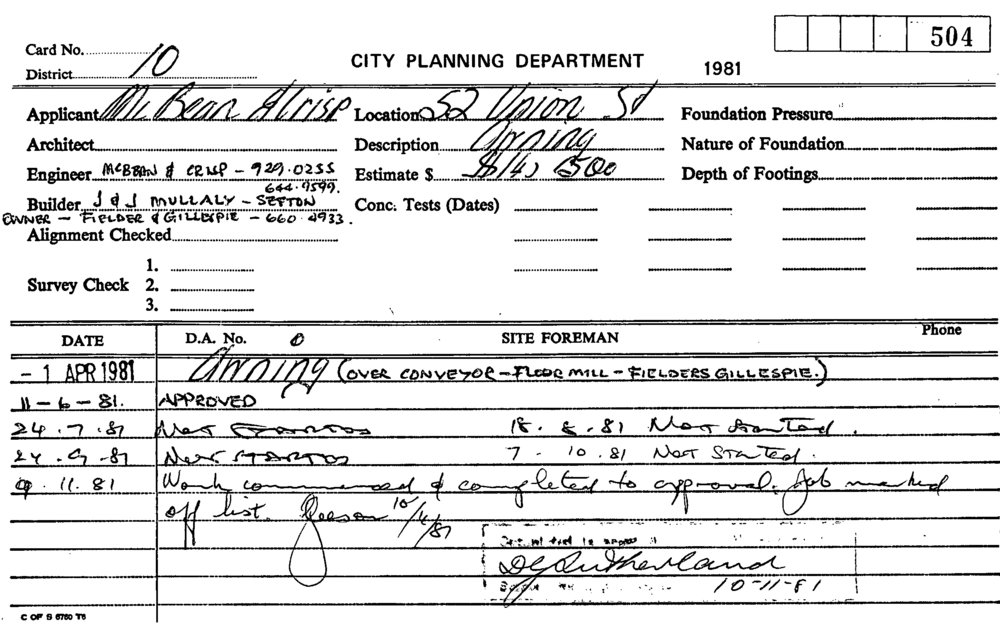 504
Card No. 10
CITY PLANNING DEPARTMENT 1981
District
Applicant Mc Bean & Crisp Location 52 Union St Foundation Pressure
Architect Description Awning Nature of Foundation
Engineer McBEAN & CRISP - 929.0255 Estimate $ $14,500 Depth of Footings
644.9599.
Builder J & J MULLALY - SEFTON Conc. Tests (Dates)
OWNER - FIELDER & GILLESPIE - 660 4933.
Alignment Checked
1.
Survey Check 2.
3.
DATE D.A. No. SITE FOREMAN Phone
- 1 APR 1981 Awning (OVER CONVEYOR - FLOUR MILL - FIELDERS GILLESPIE.)
11-6-81. APPROVED
24.7.81 Not STARTED 18.8.81 Not Started.
24.9.81 Not STARTED 7.10.81 Not Started.
9.11.81 Work commenced & completed to approval. Job marked
off list.
DJ Sutherland
10-11-81
C OF S 6760 T6